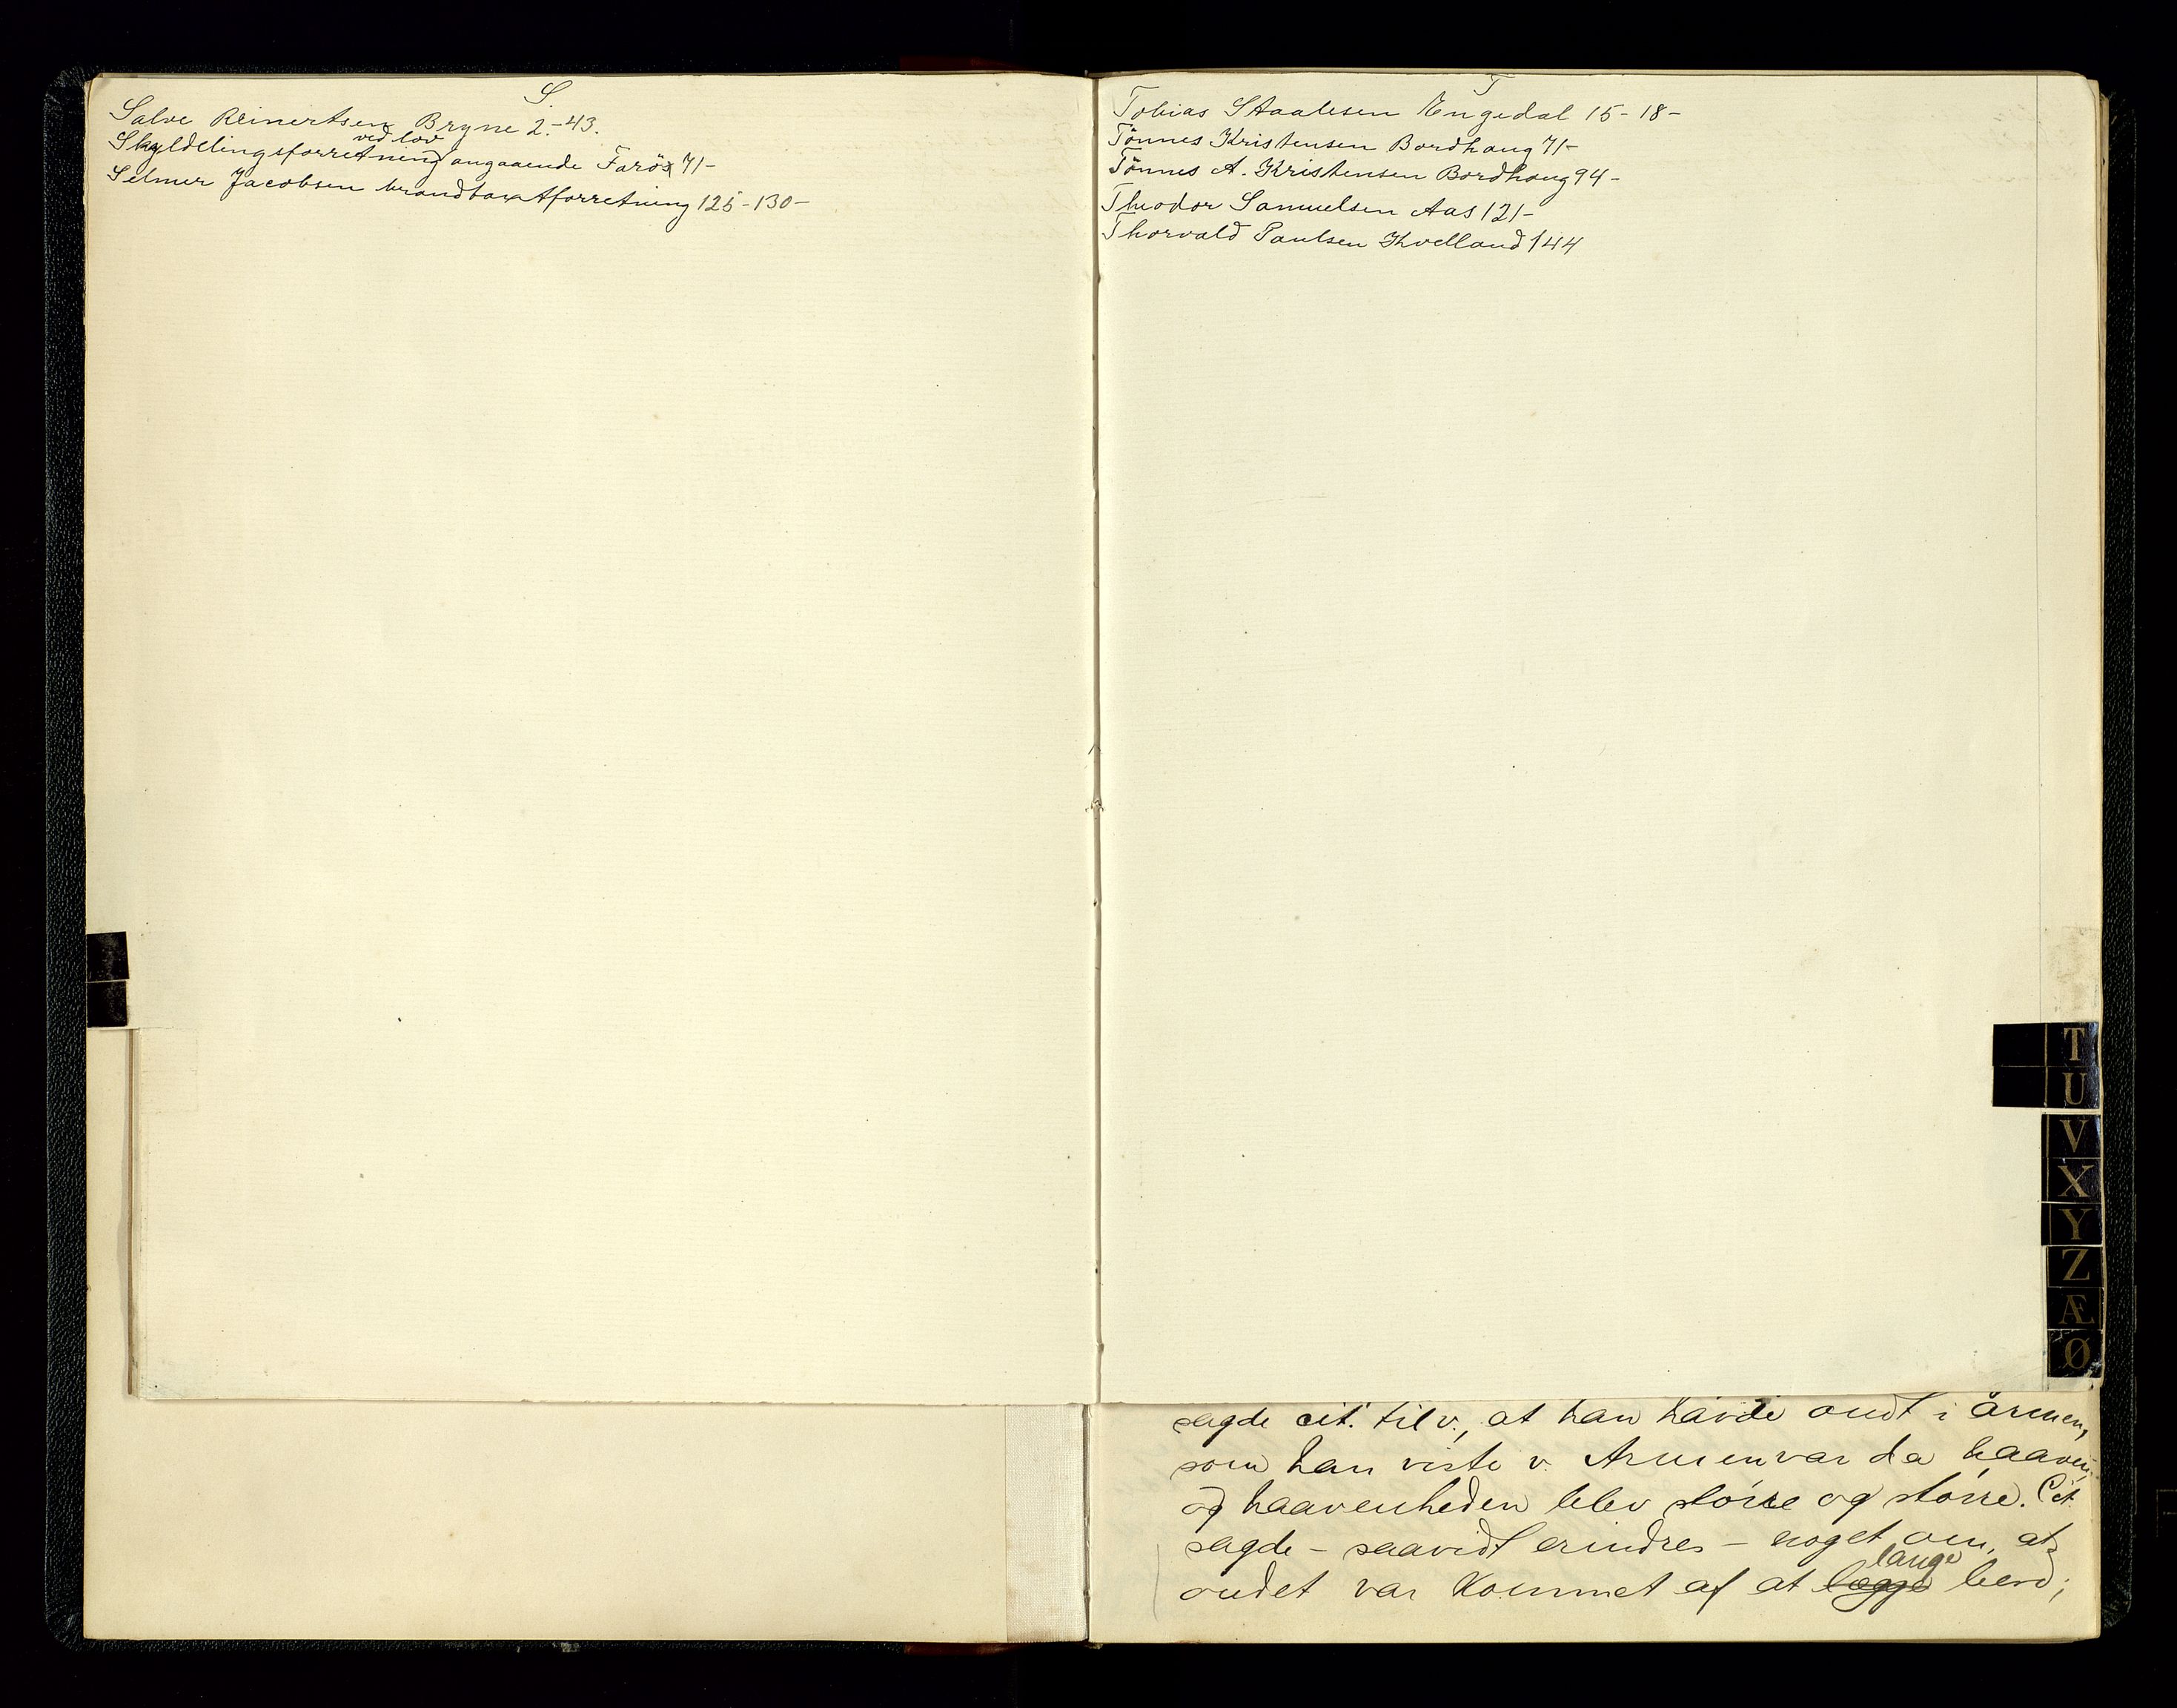 S.
Salve Reinertsen Bryne 2.-43.
ved lov
Skyldelingsforretning angaaende Farö 71-
Selmer Jacobsen brandtaxtforretning 125-130-
T
Tobias Staalesen Engedal 15-18-
Tönnes Kristensen Bordhaug 71-
Tönnes A. Kristensen Bordhaug 94-
Theodor Samuelsen Aas 121-
Thorvald Paulsen Kvelland 144
T
U
V
X
Y
Z
Æ
Ø
sagde cit. til v., at han havde ondt i armen,
som han viste v. Armen var da haaven,
og haavenheden blev större og större. Cit.
sagde - saavidt erindres - noget om, at
lange
ondet var kommet af at lægge bord;